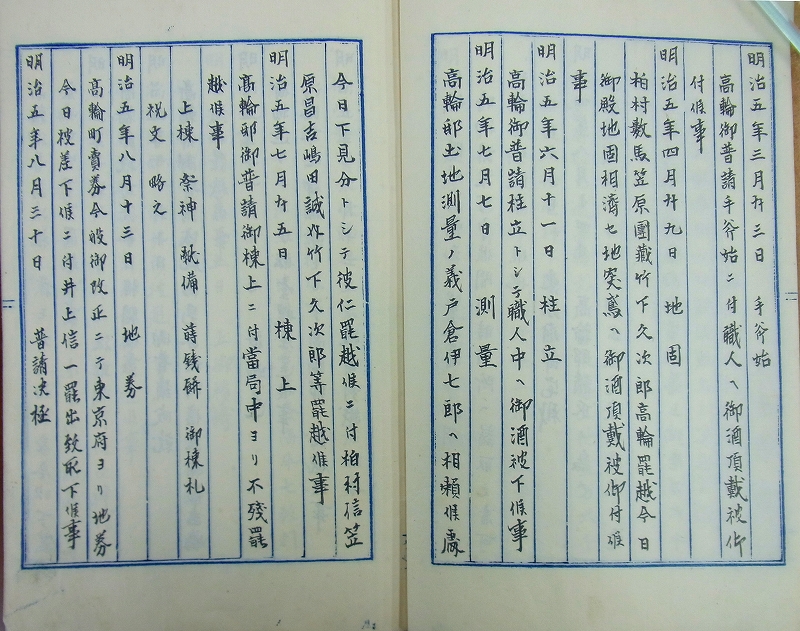 明治五年三月廿三日　手斧始
高輪御普請手斧始ニ付職人ヘ御酒頂戴被仰
付候事
明治五年四月廿九日　地固
柏村数馬笠原團蔵竹下久次郎高輪罷越今日
御殿地固相濟セ地突鳶ヘ御酒頂戴被仰付候
事
明治五年六月十一日　柱立
高輪御普請柱立トシテ職人中ヘ御酒被下候事
明治五年七月七日　測量
高輪邸土地測量ノ義戸倉伊七郎ヘ相頼候處
今日下見分トシテ彼仁罷越候ニ付柏村信笠
原昌吉嶋田誠竹下久次郎等罷越候事
明治五年七月廿五日　棟上
高輪邸御普請御棟上ニ付當局中ヨリ不残罷
越候事
上棟　祭神　備　蒔銭餅　御棟札
祝文　略之
明治五年八月十三日　地券
高輪町賣券今般御改正ニテ東京府ヨリ地券
今日被差下候ニ付井上信一罷出致配下候事
明治五年八月三十日　普請决極